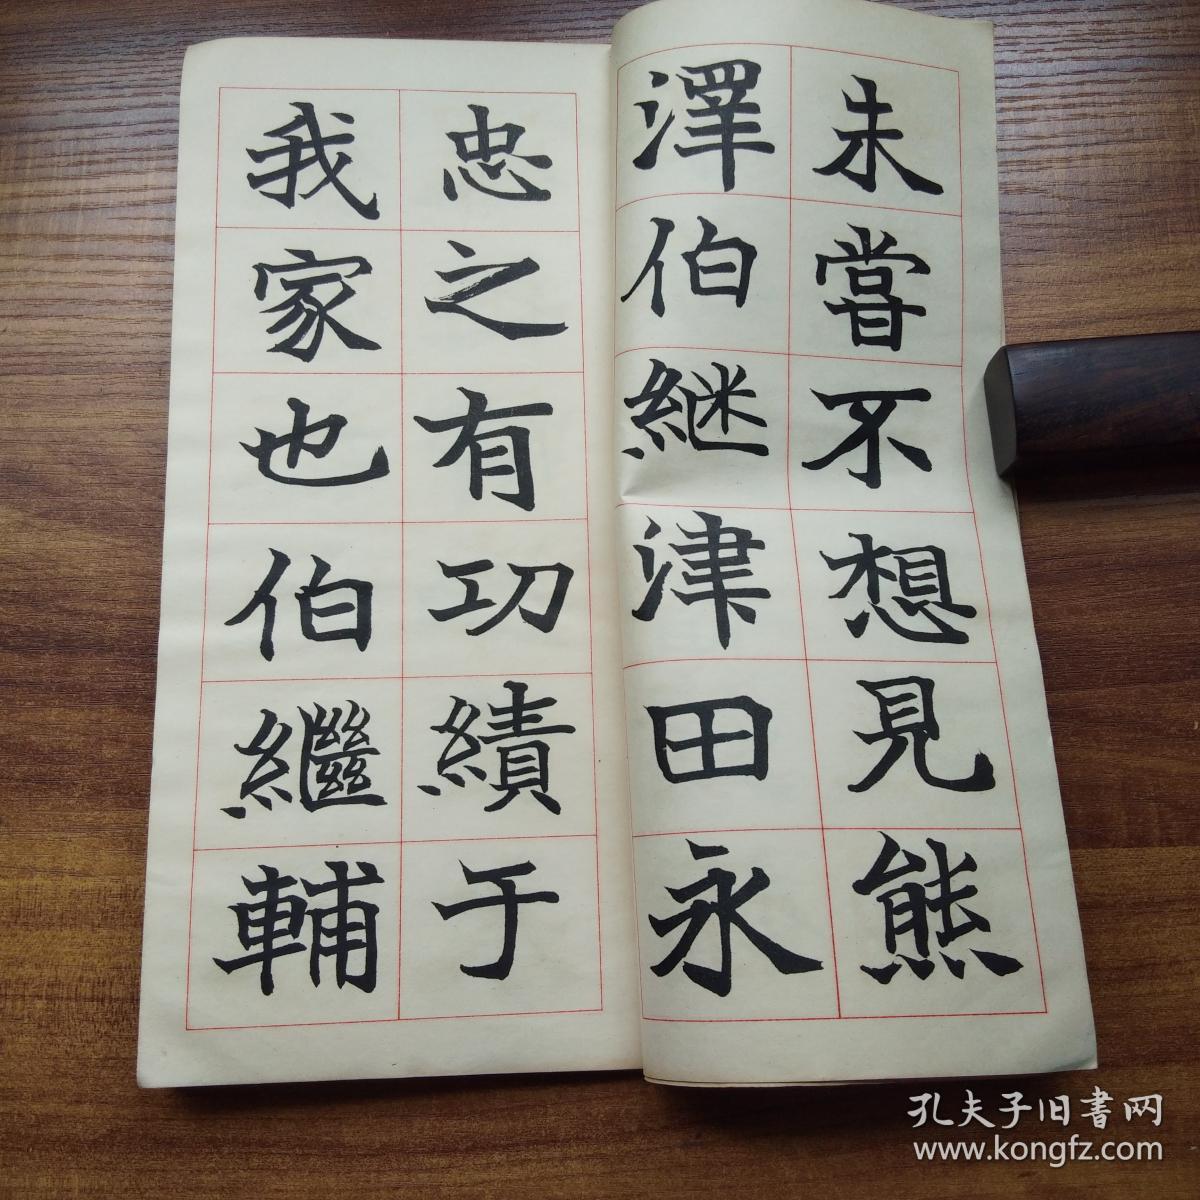 未嘗不想見熊
澤伯継津田永
忠之有功績于
我家也伯繼輔
孔夫子旧書网
www.kongfz.com